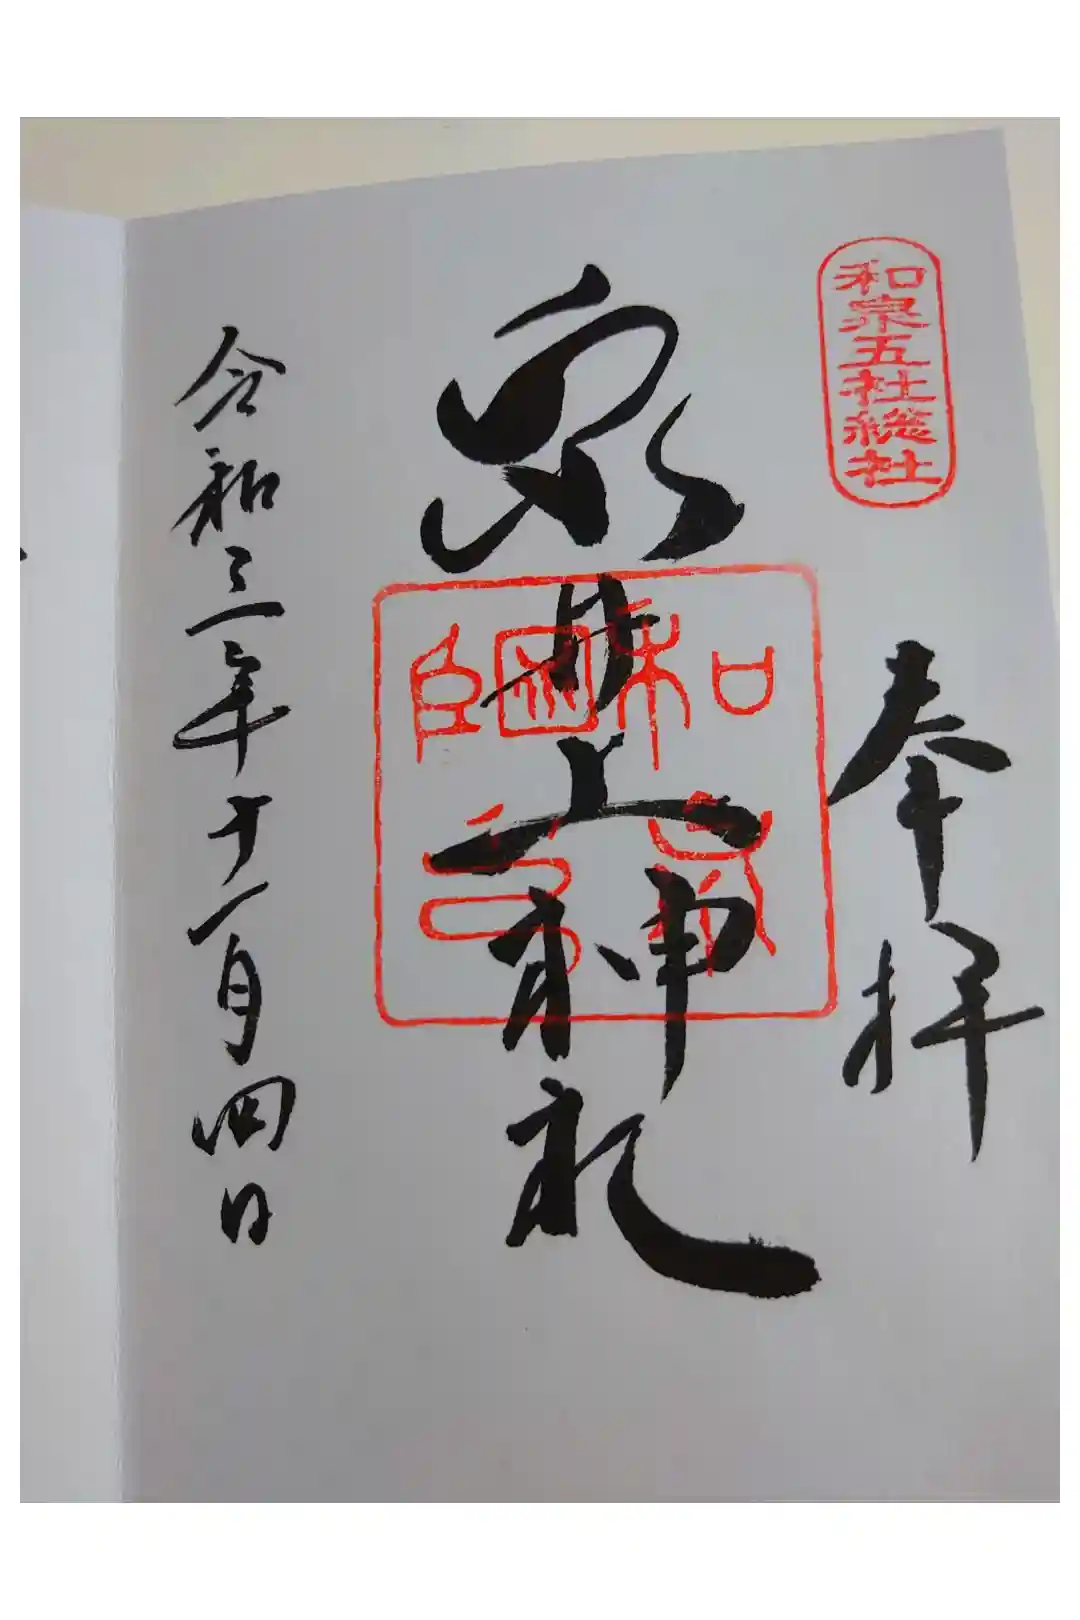 和泉五社総社
奉拝
泉井上神社
和泉国印
令和三年十一月四日